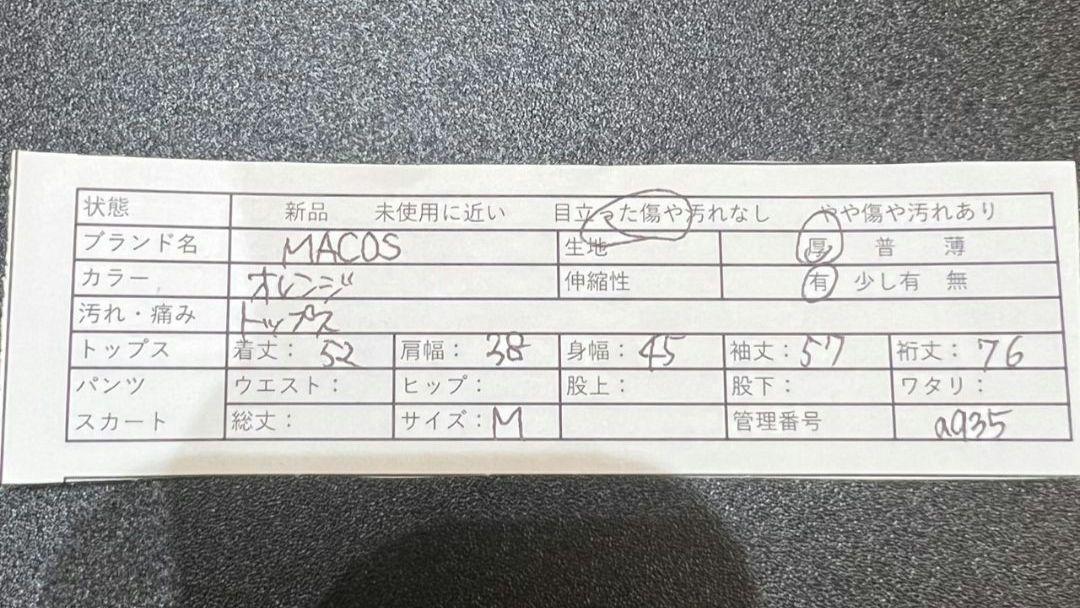 状態 新品 未使用に近い 目立った傷や汚れなし やや傷や汚れあり
ブランド名 MACOS 生地 厚 普 薄
カラー オレンジ 伸縮性 有 少し有 無
汚れ・痛み トップス
トップス 着丈： 52 肩幅： 38 身幅： 45 袖丈： 57 裄丈： 76
パンツ ウエスト： ヒップ： 股上： 股下： ワタリ：
スカート 総丈： サイズ： M 管理番号 a935